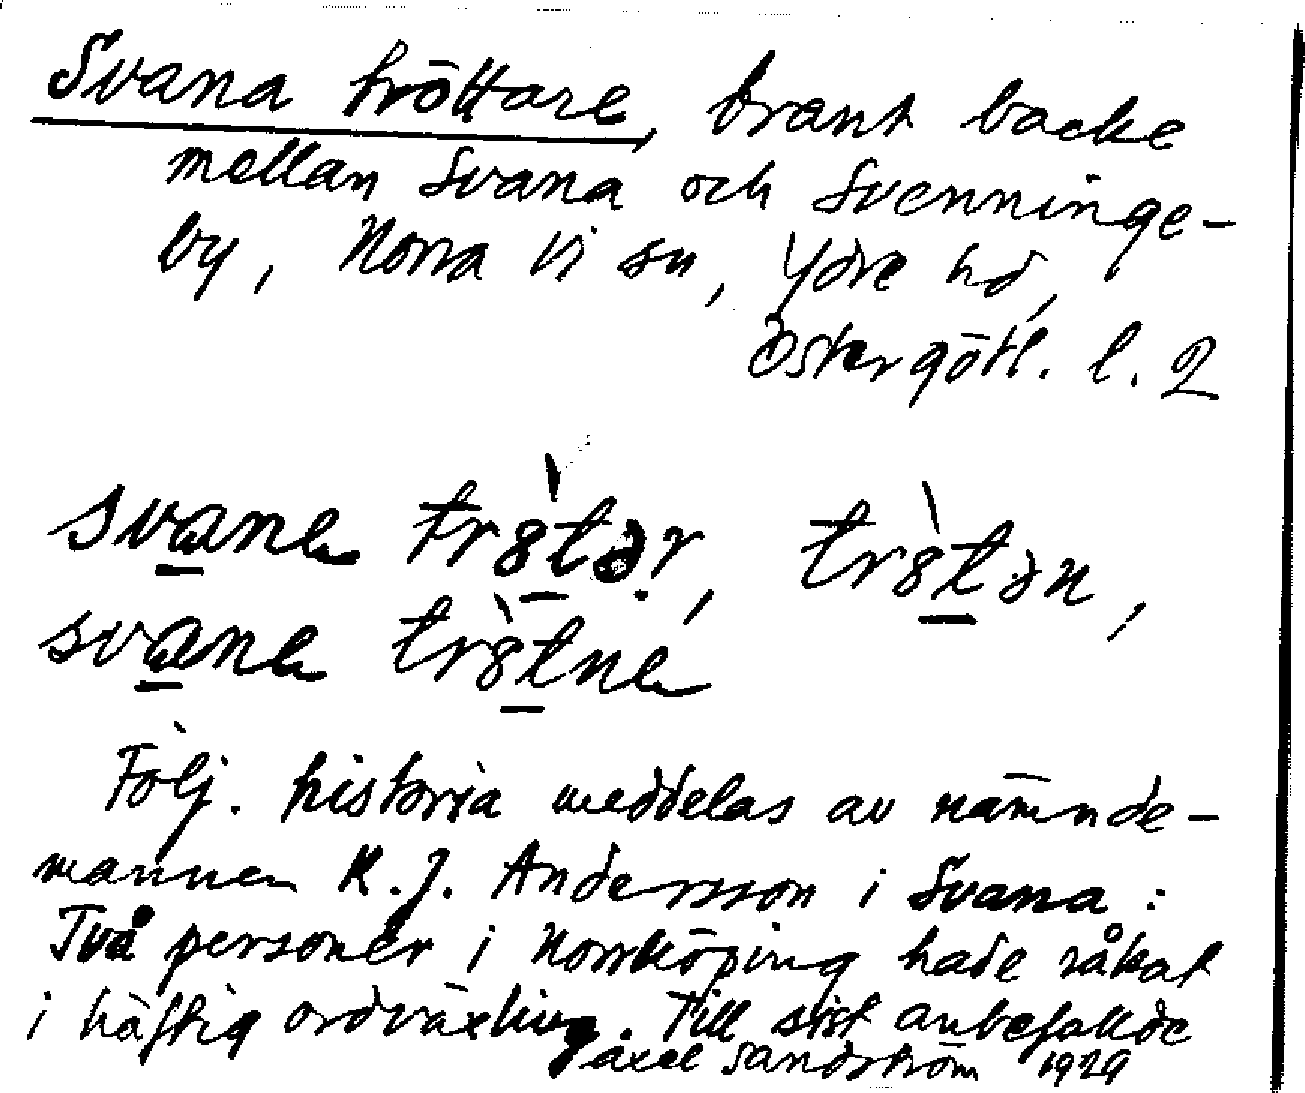 Svana tröttare, brant backe
mellan Svana och Svenninge-
by, Norra Vi sn, Ydre hd,
Östergötl. l. 2
svana trötər, trötən,
svana trötna
Följ. historia meddelas av nämnde-
mannen K. J. Andersson i Svana :
Två personer i Norrköping hade råkat
i häftig ordväxling. Till sist anbefallde
Axel Sandström 1929